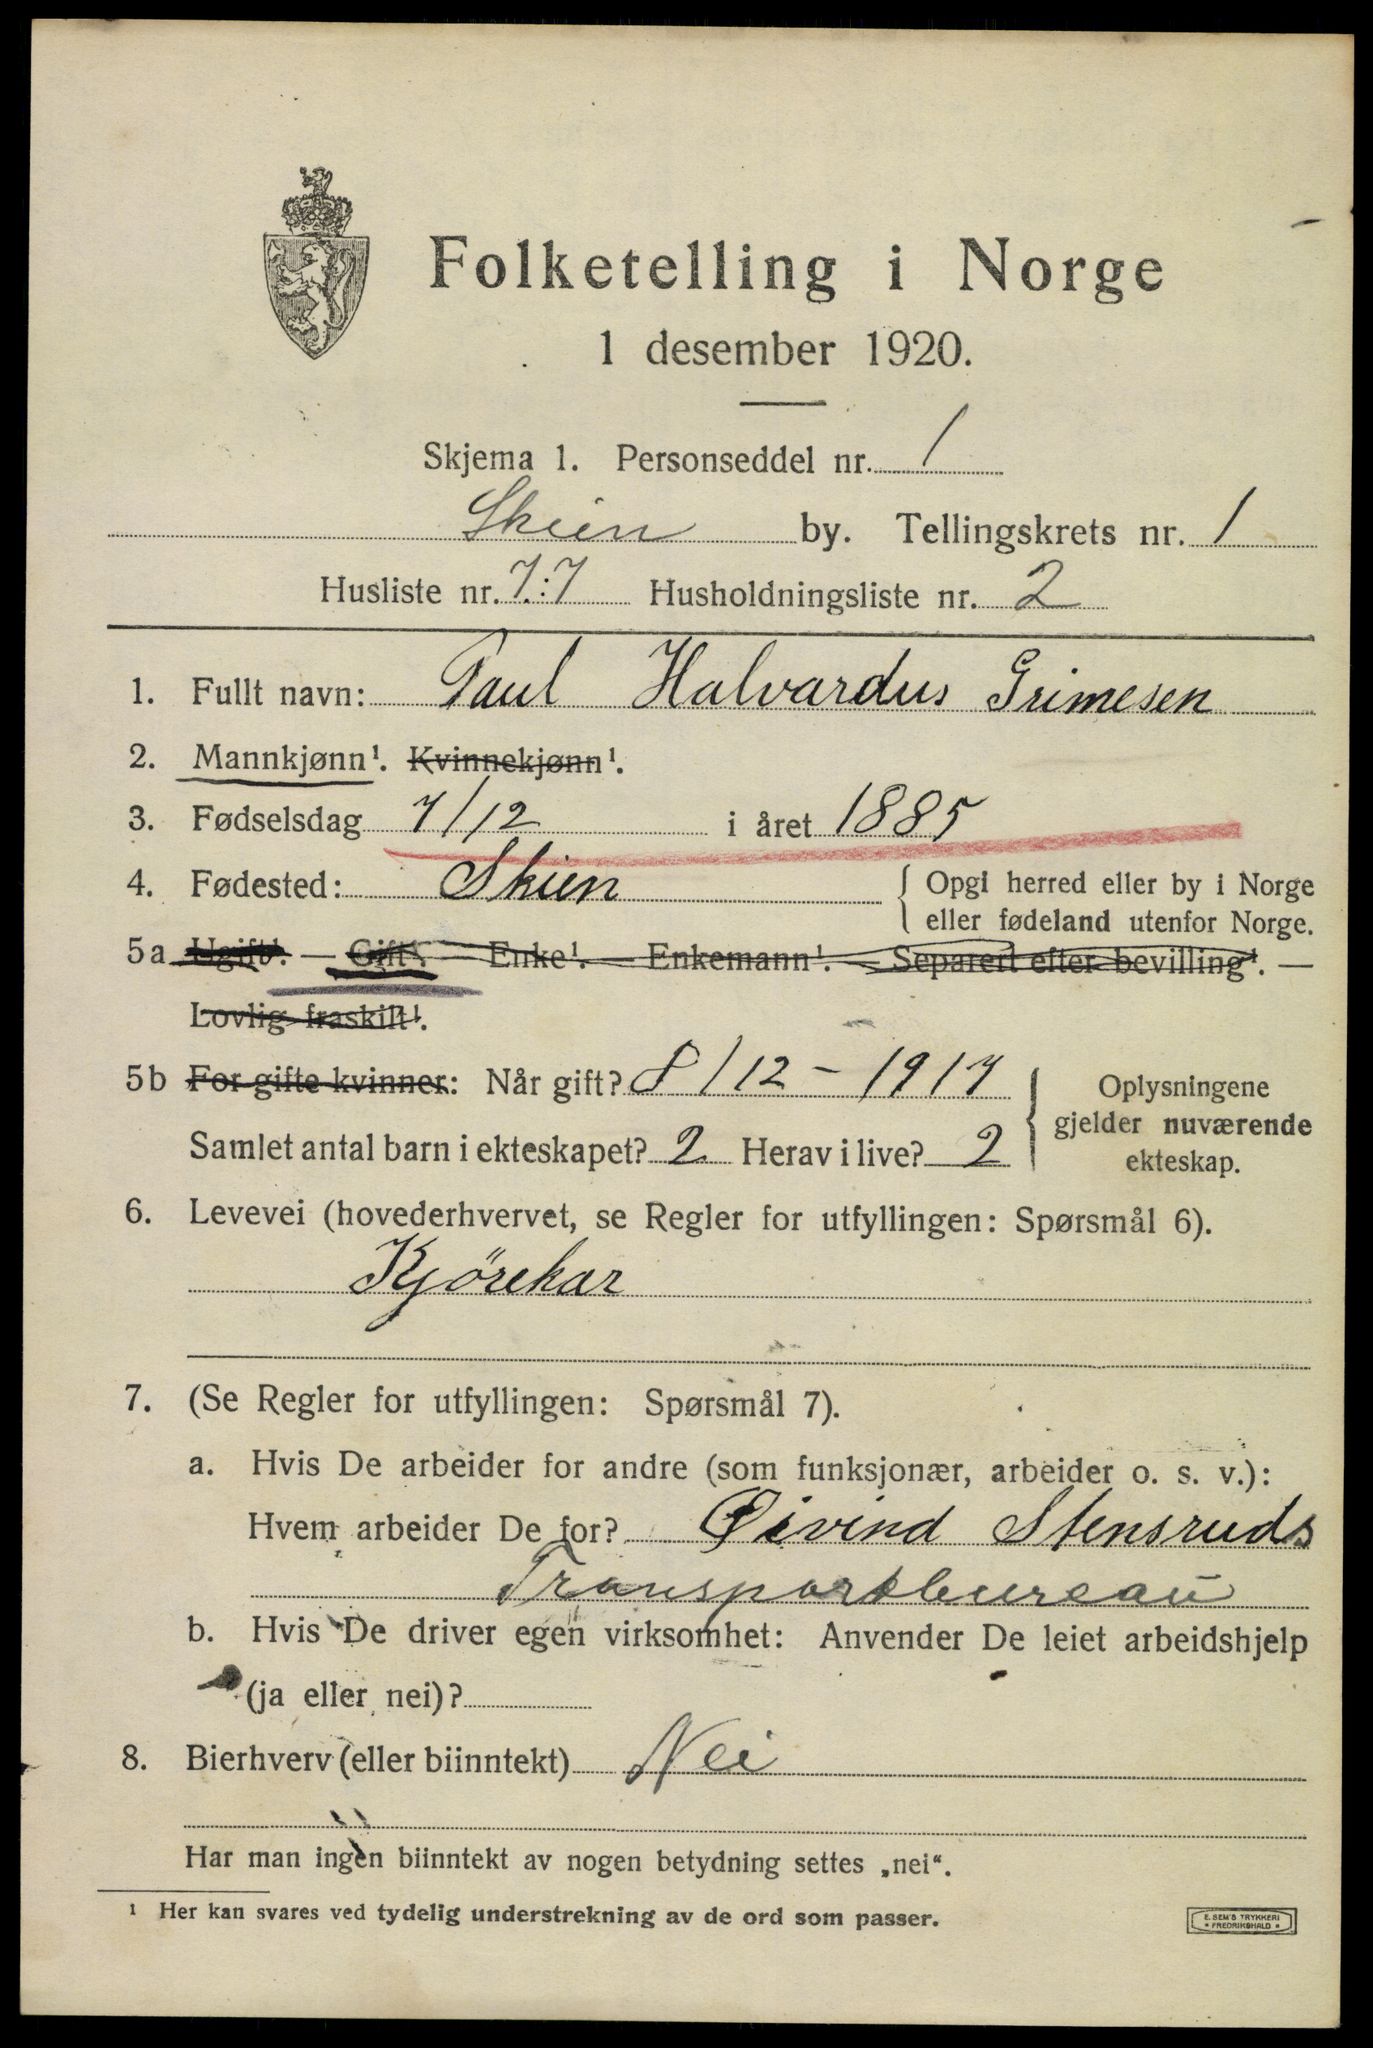 Folketelling i Norge
1 desember 1920.
Skjema 1. Personseddel nr. 1
Skien by. Tellingskrets nr. 1
Husliste nr. 7:7 Husholdningsliste nr. 2
1. Fullt navn: Paul Halvardus Grimesen
2. Mannkjønn¹. Kvinnekjønn¹.
3. Fødselsdag 7/12 i året 1885
4. Fødested: Skien { Opgi herred eller by i Norge
eller fødeland utenfor Norge.
5a Ugift¹. — Gift¹. — Enke¹. — Enkemann¹. — Separert efter bevilling¹. —
Lovlig fraskilt¹.
5b For gifte kvinner: Når gift? 8/12 - 1917
Samlet antal barn i ekteskapet? 2 Herav i live? 2
Oplysningene
gjelder nuværende
ekteskap.
6. Levevei (hovederhvervet, se Regler for utfyllingen: Spørsmål 6).
Kjörekar
7. (Se Regler for utfyllingen: Spørsmål 7).
a. Hvis De arbeider for andre (som funksjonær, arbeider o. s. v.):
Hvem arbeider De for? Øivind Stensruds
Transportbureau
b. Hvis De driver egen virksomhet: Anvender De leiet arbeidshjelp
(ja eller nei)?
8. Bierhverv (eller biinntekt) Nei
Har man ingen biinntekt av nogen betydning settes „nei“.
¹ Her kan svares ved tydelig understrekning av de ord som passer.
E. SEM'S TRYKKERI
* FREDRIKSHALD *